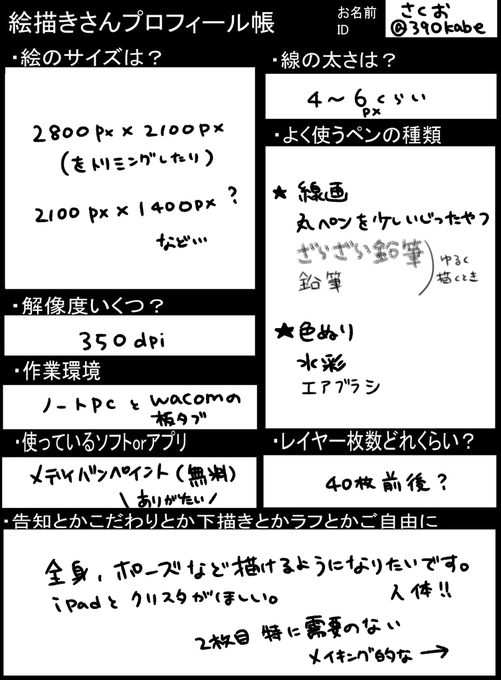 絵描きさんプロフィール帳
お名前
ID
さくお
@390kabe
・絵のサイズは？
2800px×2100px
(をトリミングしたり)
2100px×1400px？
など…
・線の太さは？
4〜6pxくらい
・よく使うペンの種類
★線画
丸ペンを少しいじったやつ
ざらざら鉛筆
鉛筆
ゆるく
描くとき
★色ぬり
水彩
エアブラシ
・解像度いくつ？
350dpi
・作業環境
ノートPCとwacomの
板タブ
・使っているソフトorアプリ
メディバンペイント(無料)
\ありがたい/
・レイヤー枚数どれくらい？
40枚前後？
・告知とかこだわりとか下描きとかラフとかご自由に
全身、ポーズなど描けるようになりたいです。
人体!!
iPadとクリスタがほしい。
2枚目 特に需要のない
メイキング的な→